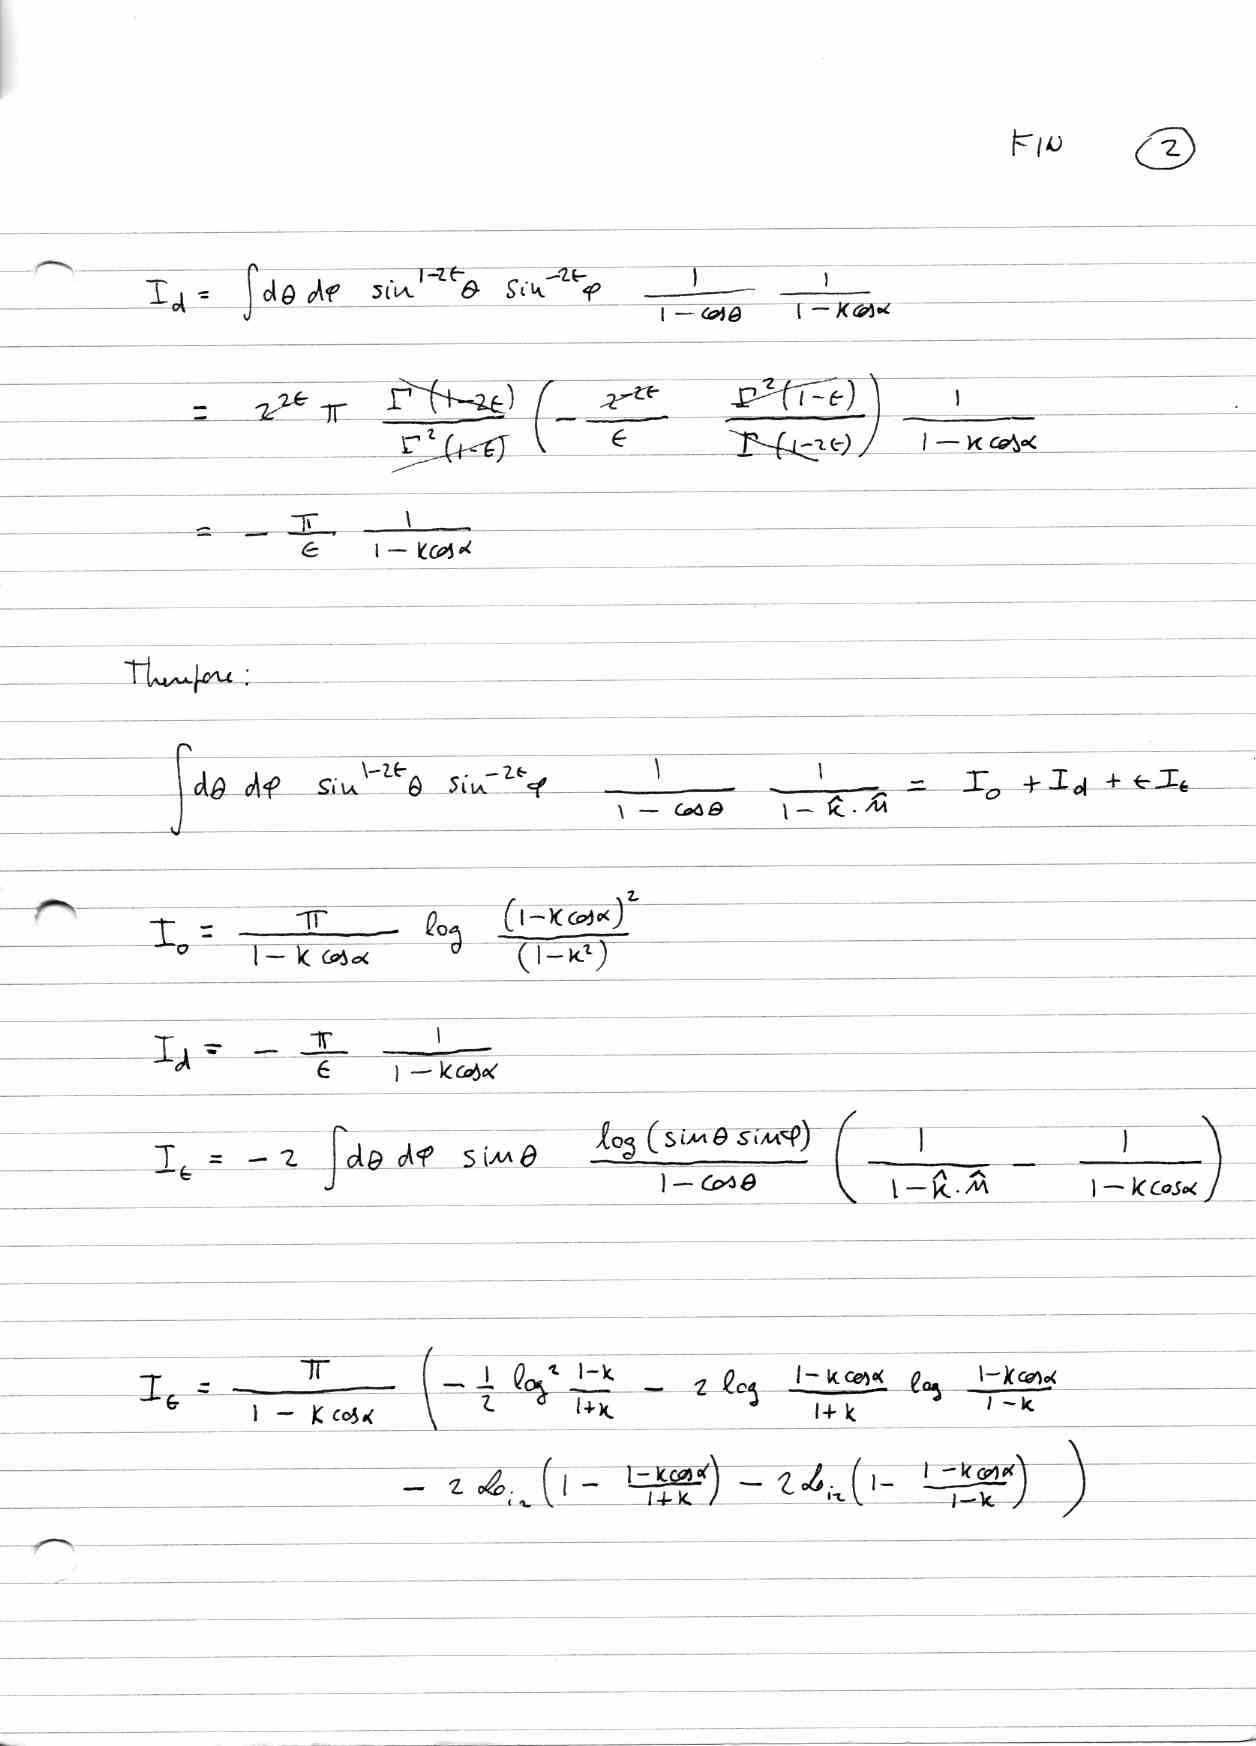 FIN ②
I_d = ∫dθ dφ sin^{1-2ϵ}θ sin^{-2ϵ}φ \frac{1}{1 - cosθ} \frac{1}{1 - κcosα}
= 2^{2ϵ} π \frac{Γ(1-2ϵ)}{Γ²(1-ϵ)} ( - \frac{2^{-2ϵ}}{ϵ} \frac{Γ²(1-ϵ)}{Γ(1-2ϵ)} ) \frac{1}{1 - κcosα}
= - \frac{π}{ϵ} \frac{1}{1 - κcosα}
Therefore:
∫dθ dφ sin^{1-2ϵ}θ sin^{-2ϵ}φ \frac{1}{1 - cosθ} \frac{1}{1 - \hat{k}·\hat{n}} = I_0 + I_d + ϵI_ϵ
I_0 = \frac{π}{1 - κcosα} log \frac{(1-κcosα)^2}{(1-κ²)}
I_d = - \frac{π}{ϵ} \frac{1}{1 - κcosα}
I_ϵ = -2 ∫dθ dφ sinθ \frac{log(sinθ sinφ)}{1 - cosθ} ( \frac{1}{1 - \hat{k}·\hat{n}} - \frac{1}{1 - κcosα} )
I_ϵ = \frac{π}{1 - κcosα} ( - \frac{1}{2} log² \frac{1-κ}{1+κ} - 2 log \frac{1-κcosα}{1+κ} log \frac{1-κcosα}{1-κ}
- 2 Li_2 (1 - \frac{1-κcosα}{1+κ}) - 2 Li_2 (1 - \frac{1-κcosα}{1-κ}) )